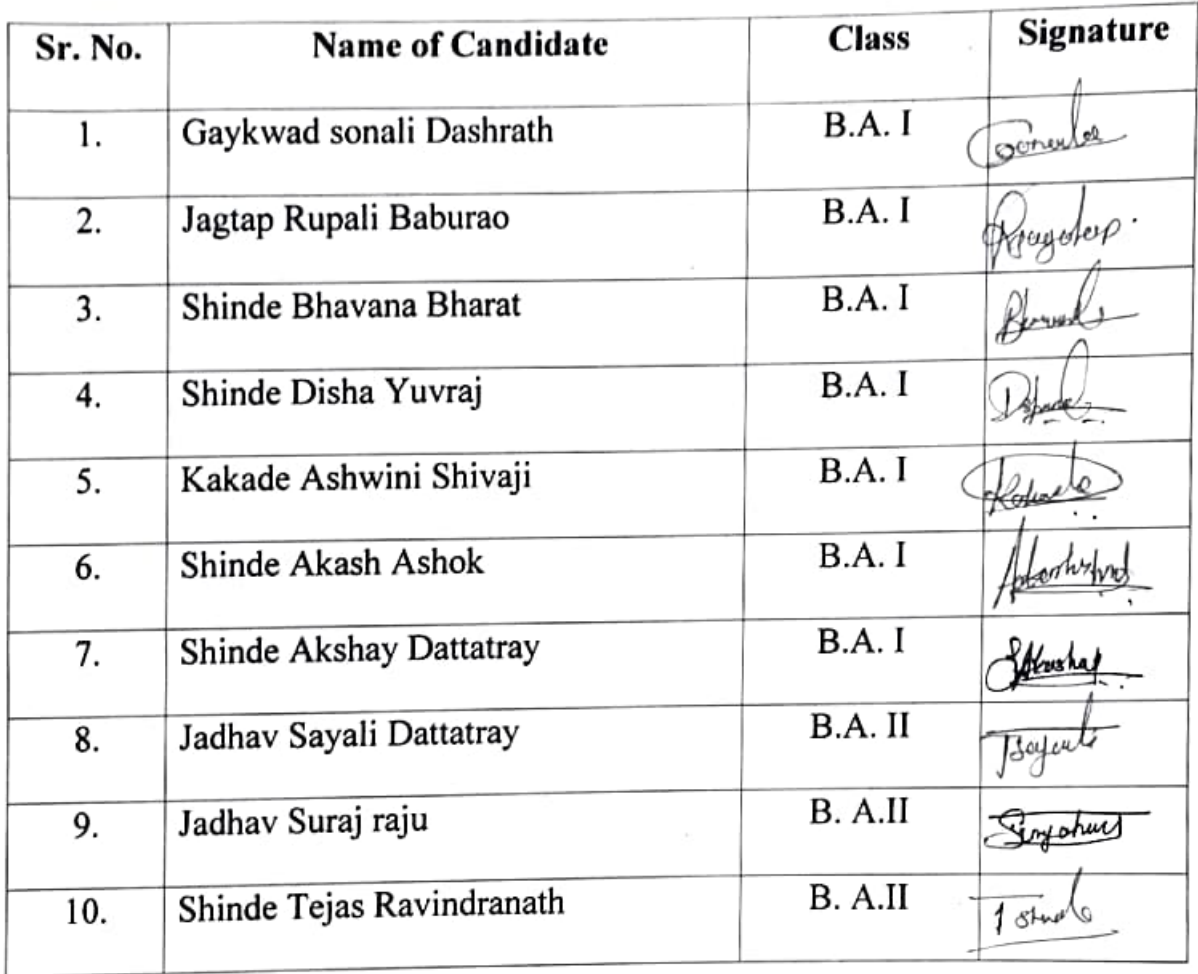 Sr. No. Name of Candidate Class Signature
1. Gaykwad sonali Dashrath B.A. I
2. Jagtap Rupali Baburao B.A. I
3. Shinde Bhavana Bharat B.A. I
4. Shinde Disha Yuvraj B.A. I
5. Kakade Ashwini Shivaji B.A. I
6. Shinde Akash Ashok B.A. I
7. Shinde Akshay Dattatray B.A. I
8. Jadhav Sayali Dattatray B.A. II
9. Jadhav Suraj raju B. A.II
10. Shinde Tejas Ravindranath B. A.II